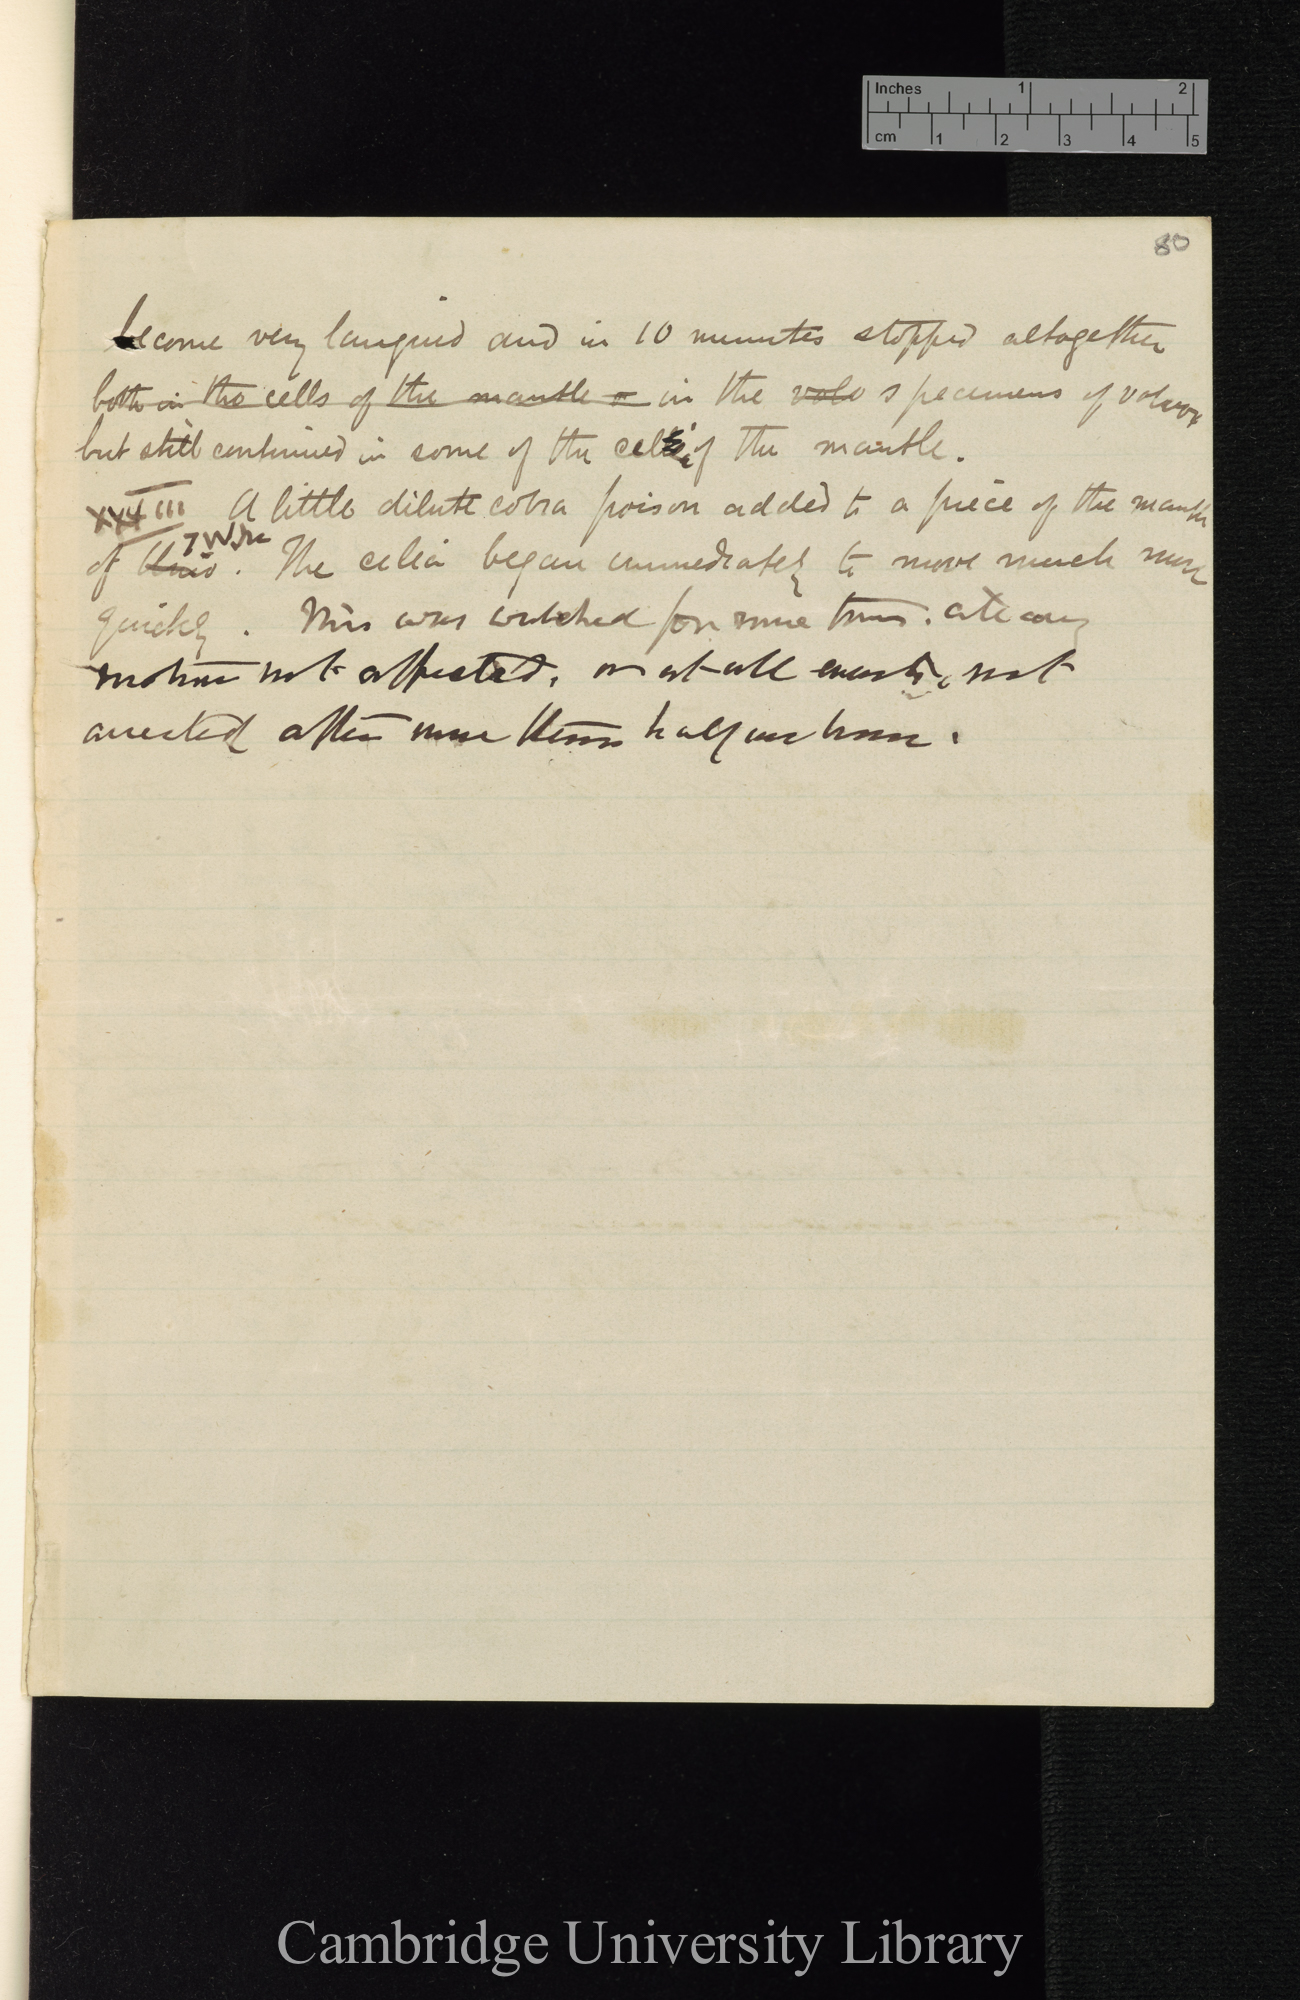 Inches 1 2
cm 1 2 3 4 5
80
become very languid and in 10 minutes stopped altogether
both in the cells of the mantle or in the volo specimens of volvox
but still continued in some of the cells of the mantle.
XXXIII A little dilute cobra poison added to a piece of the mantle
of Unio. The cilia began immediately to move much more
quickly. This was watched for some time. Ciliary
motion not affected, or at all events, not
arrested after more than half an hour.
Cambridge University Library